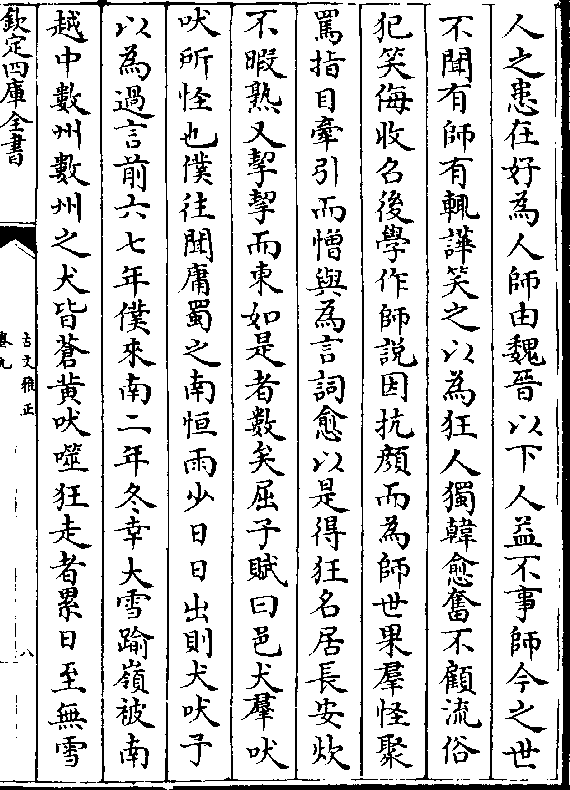 人之患在好為人師由魏晉以下人益不事師今之世
不聞有師有輒譁笑之以為狂人獨韓愈奮不顧流俗
犯笑侮收名後學作師說因抗顔而為師世果羣怪聚
罵指目牽引而憎與為言詞愈以是得狂名居長安炊
不暇熟又挈挈而東如是者數矣屈子賦曰邑犬羣吠
吠所怪也僕往聞庸蜀之南恒雨少日日出則犬吠予
以為過言前六七年僕來南二年冬幸大雪踰嶺被南
越中數州數州之犬皆蒼黄吠噬狂走者累日至無雪
欽定四庫全書
古文雅正
卷九
八